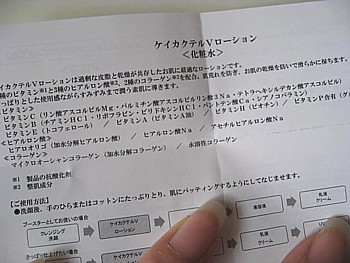 ケイカクテルVローション
<化粧水>
イカクテルVローションは過剰な皮脂と乾燥が共存したお肌に最適なローションです。
種のビタミン※1と3種のヒアルロン酸※2、2種のコラーゲン※2を配合。肌荒れを防ぎ、お肌の乾燥を防いで滑らかに保ちます。
っぱりとした使用感ながらすみずみまで潤う素肌に導きます。
ビタミン>
ビタミンC(リン酸アスコルビルMg・パルミチン酸アスコルビルリン酸3Na・テトラヘキシルデカン酸アスコルビル)
ビタミンB(チアミンHCl・リボフラビン・ピリドキシンHCl・パントテン酸Ca・シアノコバラミン)
ビタミンE(トコフェロール) / ビタミンA(ビタミンA油) / ビタミンH(ビオチン) / ビタミンP含有(グ
<ヒアルロン酸>
ヒアロオリゴ(加水分解ヒアルロン酸) / ヒアルロン酸Na / アセチルヒアルロン酸Na
<コラーゲン>
マイクロオーションコラーゲン(加水分解コラーゲン) / 水溶性コラーゲン
※1 製品の抗酸化剤
※2 整肌成分
【ご使用方法】
●洗顔後、手のひらまたはコットンにたっぷりとり、肌にパッティングするようにしてなじませます。
ブースターとしてお使いの場合
クレンジング
洗顔
ケイカクテルV
ローション
美容液
乳液
クリーム
さっぱり仕上げたい場合
ケイカクテルV
乳液
クリーム